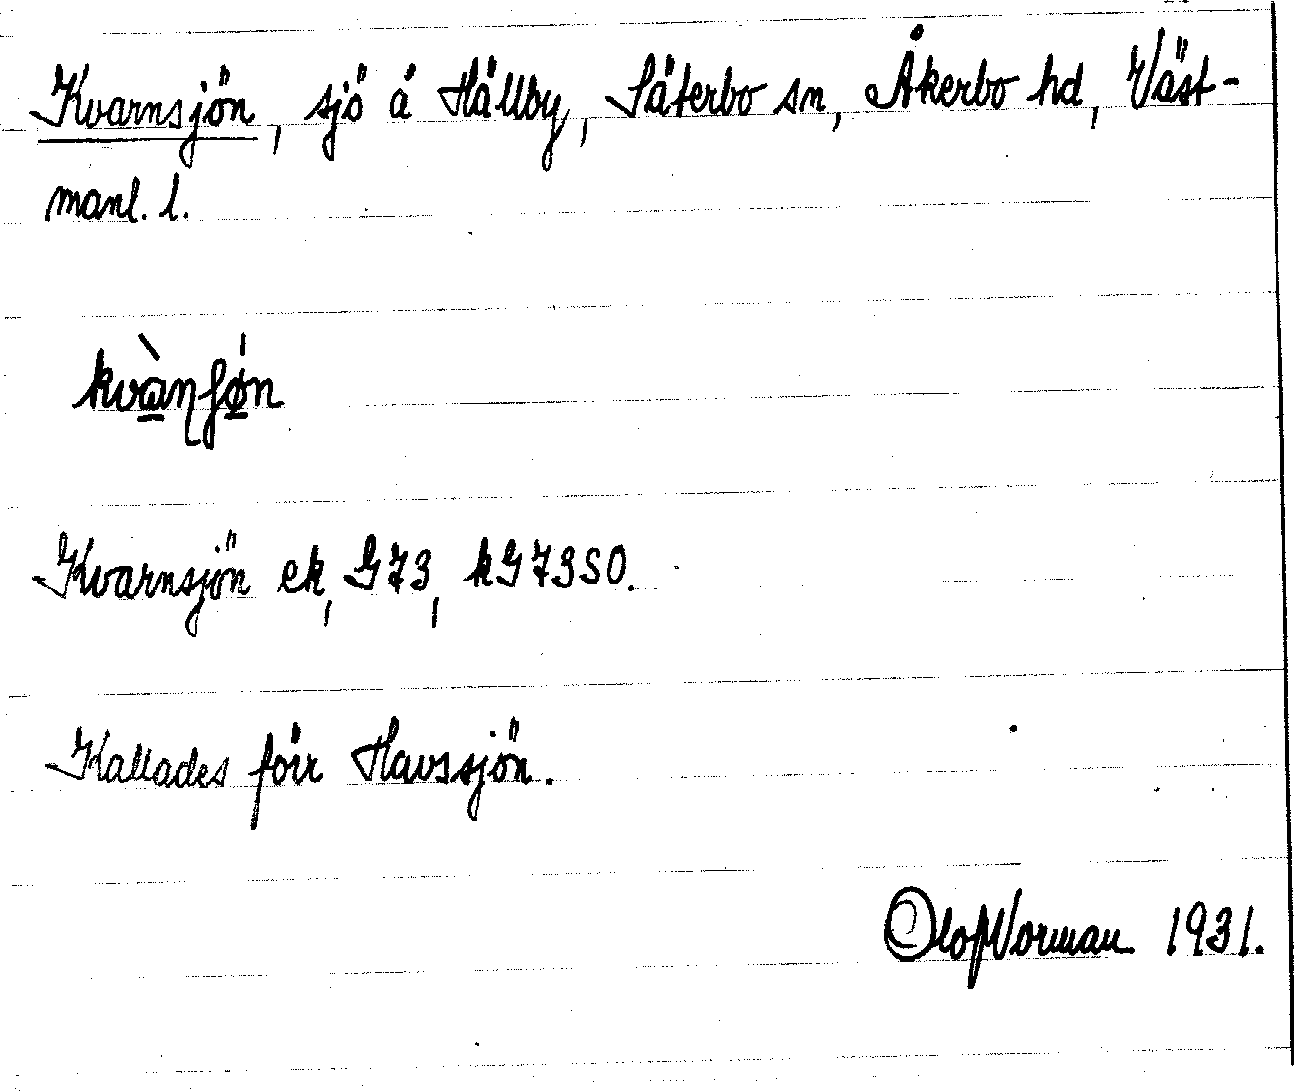 Kvarnsjön, sjö å Hällby, Säterbo sn, Åkerbo hd, Väst-
manl. l.
Kvarnsjön ek, G73, kG73SO.
Kallades förr Havssjön.
Olof Norman 1931.